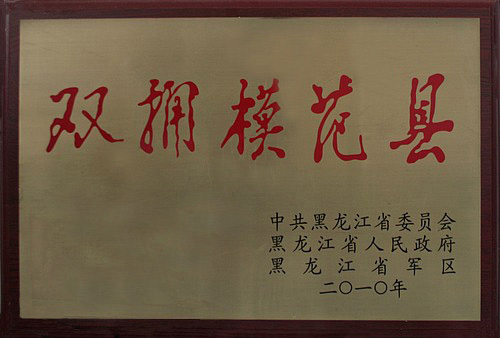 双拥模范县
中共黑龙江省委员会
黑龙江省人民政府
黑龙江省军区
二〇一〇年